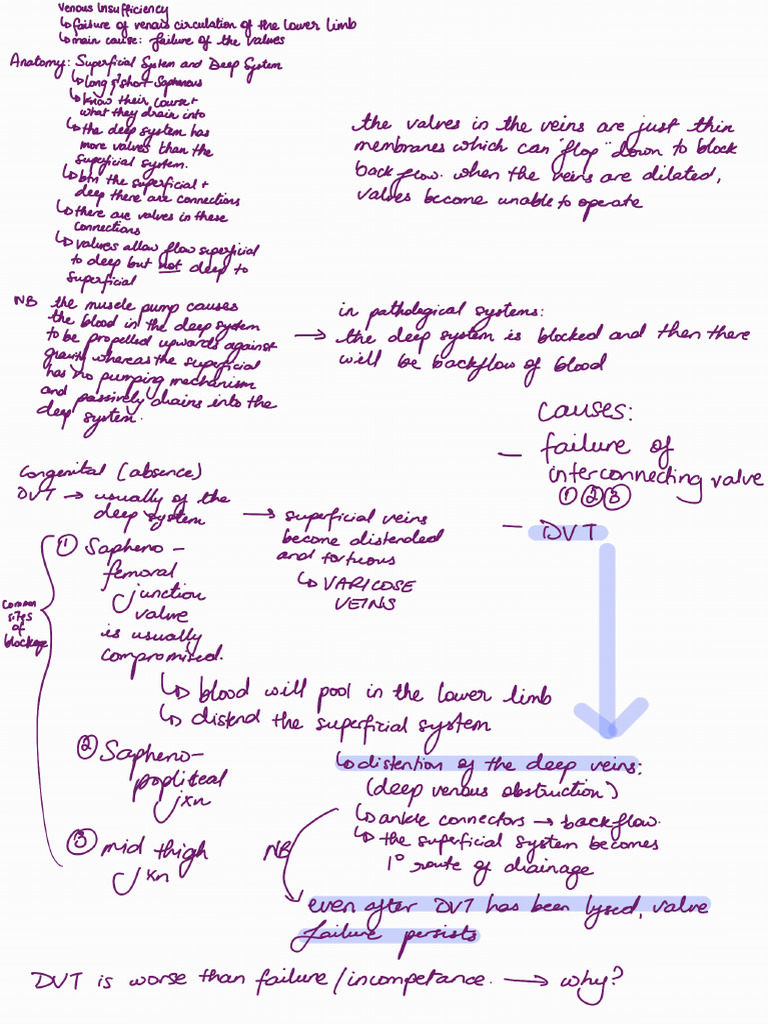 Venous Insufficiency
↳ failure of venous circulation of the lower limb
↳ main cause: failure of the valves
Anatomy: Superficial System and Deep System
↳ long & short Saphenous
↳ know their course +
what they drain into
↳ the deep system has
more valves than the
superficial system.
↳ btn the superficial +
deep there are connections
↳ there are valves in these
connections
↳ valves allow flow superficial
to deep but not deep to
superficial
the valves in the veins are just thin
membranes which can "flop" down to block
backflow. when the veins are dilated,
valves become unable to operate
NB the muscle pump causes
the blood in the deep system
to be propelled upwards against
gravity whereas the superficial
has no pumping mechanism
and passively drains into the
deep system.
→ in pathological systems:
the deep system is blocked and then there
will be backflow of blood
causes:
— failure of
interconnecting valve
① ② ③
— DVT
Congenital (absence)
DVT → usually of the
deep system
→ superficial veins
become distended
and tortuous
↳ VARICOSE
VEINS
common
sites
of
blockage
① Sapheno-
femoral
junction
valve
is usually
compromised.
↳ blood will pool in the lower limb
↳ distend the superficial system
② Sapheno-
popliteal
jxn
③ mid thigh
jxn
↳ distention of the deep veins:
(deep venous obstruction)
↳ ankle connectors → backflow.
↳ the superficial system becomes
1° route of drainage
NB
even after DVT has been lysed, valve
failure persists
DVT is worse than failure/incompetance. → why?